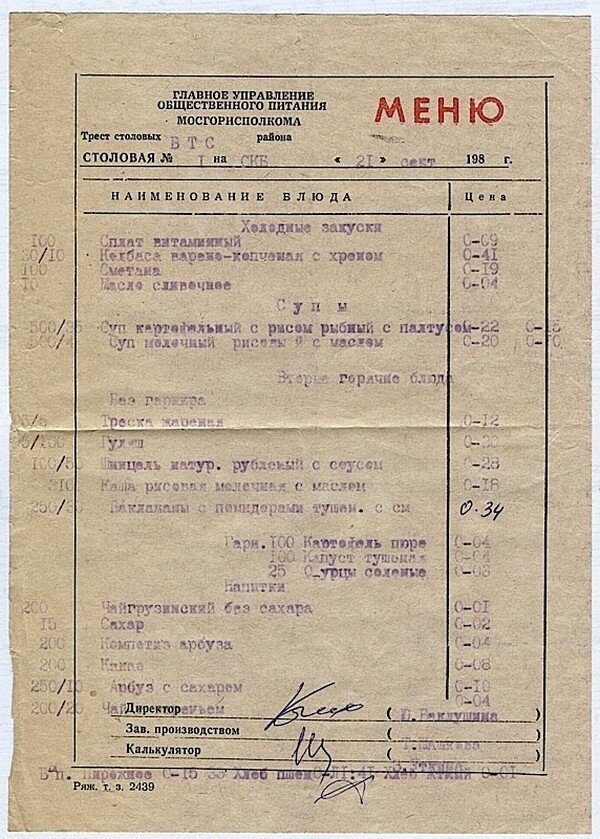 ГЛАВНОЕ УПРАВЛЕНИЕ
ОБЩЕСТВЕННОГО ПИТАНИЯ
МОСГОРИСПОЛКОМА
МЕНЮ
Трест столовых ВТС района
СТОЛОВАЯ № I на СКБ « 21 » сент 198 г.
НАИМЕНОВАНИЕ БЛЮДА Цена
Холодные закуски
100 Сплат витаминный 0-09
/10 Колбаса варено-копченая с хреном 0-41
100 Сметана 0-19
10 Масло сливочное 0-04
Супы
500/35 Суп картофельный с рисом рыбный с палтусом 0-22 0-15
500/4 Суп молочный рисовый с маслом 0-20 0-10
Вторые горячие блюда
Без гарнира
Треска жареная 0-12
/100 Гуляш 0-20
100/50 Шницель натур. рубленый с соусом 0-28
310 Каша рисовая молочная с маслом 0-18
250/30 Баклажаны с помидорами тушен. с см 0-34
Гарн. 100 Картофель пюре 0-04
100 Капуст тушеная 0-04
25 О урцы соленые 0-03
Напитки
200 Чайгрузинский без сахара 0-01
15 Сахар 0-02
200 Компотиз арбуза 0-04
200 Какао 0-08
250/10 Арбуз с сахаром 0-10
200/25 Чай 0-04
Директор ( О.Баклушина )
Зав. производством ( )
Калькулятор ( )
В п. Пирожное 0-15 Хлеб 0-01
Ряж. т. з. 2439